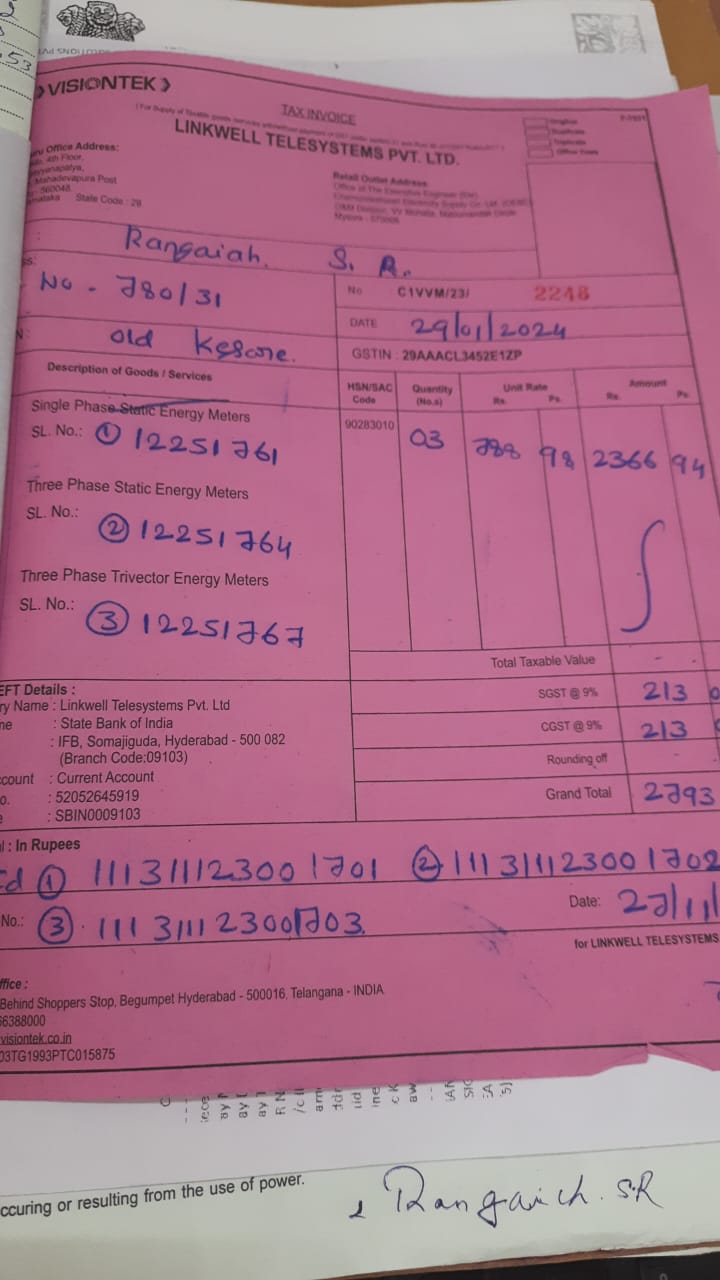 53
VISIONTEK
TAX INVOICE
LINKWELL TELESYSTEMS PVT. LTD.
Office Address:
4th Floor,
Mahadevapura Post
560048
State Code : 29
Retail Outlet Address
Rangaiah. S. R.
No - 780/31
old Kesare.
No C1VVM/23/ 2246
DATE 29/01/2024
GSTIN : 29AAACL3452E1ZP
Description of Goods / Services
HSN/SAC Code
Quantity (No.s)
Unit Rate
Rs. Ps.
Amount
Rs. Ps.
Single Phase Static Energy Meters
SL. No.: ① 12251761
90283010 03 788 98 2366 94
Three Phase Static Energy Meters
SL. No.:
② 12251764
Three Phase Trivector Energy Meters
SL. No.:
③ 12251767
Total Taxable Value -
EFT Details :
ry Name : Linkwell Telesystems Pvt. Ltd
me : State Bank of India
: IFB, Somajiguda, Hyderabad - 500 082
(Branch Code:09103)
ccount : Current Account
o. : 52052645919
e : SBIN0009103
SGST @ 9% 213
CGST @ 9% 213
Rounding off -
Grand Total 2793
: In Rupees
① 111311123001701 ② 111311123001702
No.: ③ 111311123001703
Date: 27/11/
for LINKWELL TELESYSTEMS
ffice :
Behind Shoppers Stop, Begumpet Hyderabad - 500016, Telangana - INDIA
66388000
visiontek.co.in
03TG1993PTC015875
ccuring or resulting from the use of power.
Rangaich. S.R